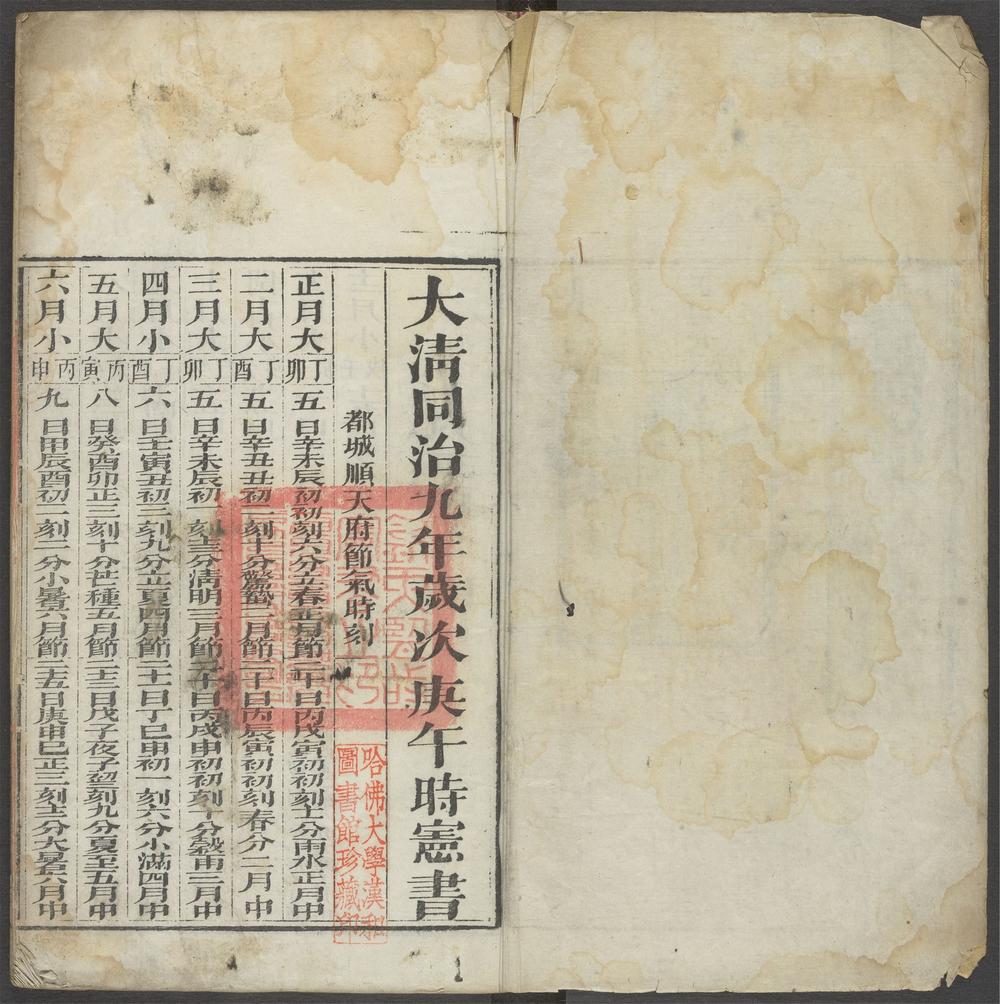 大清同治九年歲次庚午時憲書
都城順天府節氣時刻
正月大 丁卯 五日辛未辰初初刻六分立春正月節二十日丙戌寅初初刻十二分雨水正月中
二月大 丁酉 五日辛丑丑初一刻十分驚蟄二月節二十日丙辰寅初初刻春分二月中
三月大 丁卯 五日辛未辰初一刻十三分清明三月節二十日丙戌申初初刻十分穀雨三月中
四月小 丁酉 六日壬寅丑初三刻九分立夏四月節二十一日丁巳申初一刻六分小滿四月中
五月大 丙寅 八日癸酉卯正三刻十分芒種五月節二十三日戊子夜子初三刻九分夏至五月中
六月小 丙申 九日甲辰酉初二刻二分小暑六月節二十五日庚申巳正三刻十三分大暑六月中
哈佛大學漢和
圖書館珍藏印